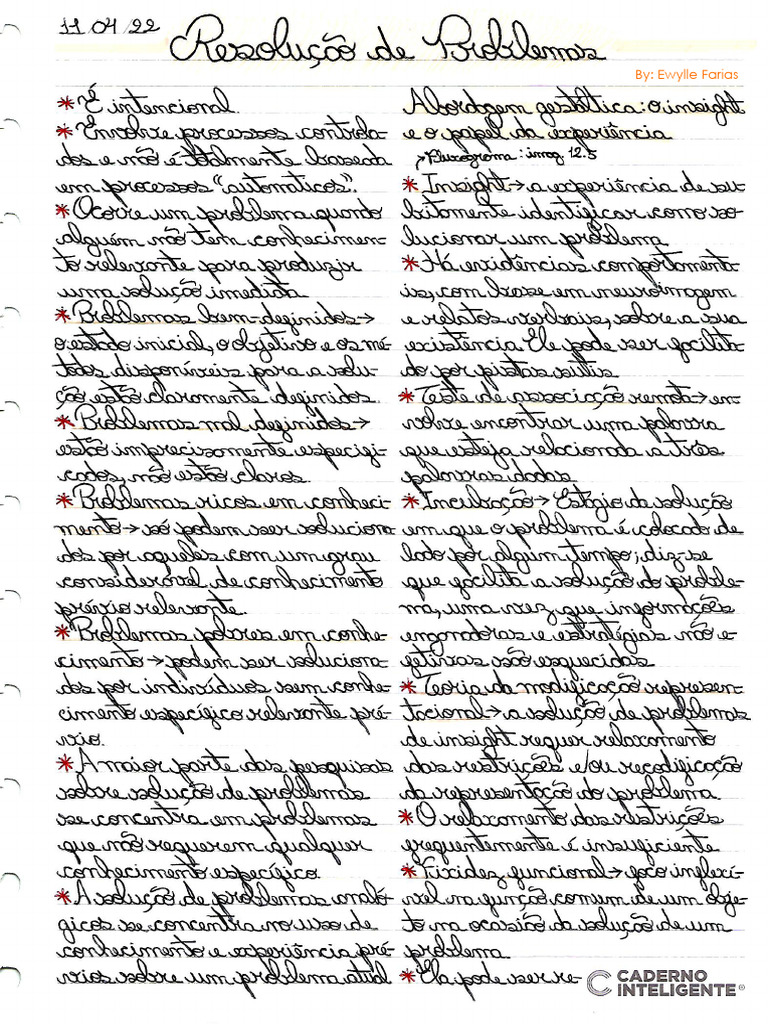 11/04/22
Resolução de Problemas
By: Ewylle Farias
* É intencional.
* Envolve processos controla-
dos e não é totalmente baseada
em processos "automaticos".
* Ocorre um problema quando
alguém não tem conhecimen-
to relevante para produzir
uma solução imediata
* Problemas bem-definidos →
o estado inicial, o objetivo e os mé-
todos disponíveis para a solu-
ção estão claramente definidos.
* Problemas mal definidos →
estão imprecisamente especifi-
cados, não estão claros.
* Problemas ricos em conheci-
mento → só podem ser soluciona
dos por aqueles com um grau
considerável de conhecimento
prévio relevante.
* Problemas pobres em conhe-
cimento → podem ser soluciona-
dos por indivíduos sem conhe-
cimento específico relevante pré-
vio.
* A maior parte das pesquisas
sobre solução de problemas
se concentra em problemas
que não requerem qualquer
conhecimento específico.
* A solução de problemas análó-
gicos se concentra no uso de
conhecimento e experiência pré-
vios sobre um problema atual
Abordagem gestáltica: o insight
e o papel da experiência
↳ Fluxograma: imag 12.5
* Insight → a experiência de su-
bitamente identificar como so-
lucionar um problema
* Há evidências comportamenta-
is, com base em neuroimagem
e relatos verbais, sobre a sua
existência. Ele pode ser facilita-
do por pistas sutis
* Teste de associação remota → en-
volve encontrar uma palavra
que esteja relacionada a três
palavras dadas
* Incubação → Estágio da solução
em que o problema é colocado de
lado por algum tempo; diz-se
que facilita a solução do proble-
ma, uma vez que informações
enganadoras e estratégias não e-
fetivas são esquecidas
* Teoria da modificação represen-
tacional → a solução de problemas
de insight requer relaxamento
das restrições e/ou recodificação
da representação do problema.
* O relaxamento das restrições
frequentemente é insuficiente
* Fixidez funcional → foco inflexí-
vel na função comum de um obje-
to na ocasião da solução de um
problema
* Ela pode ser re-
CADERNO
INTELIGENTE®